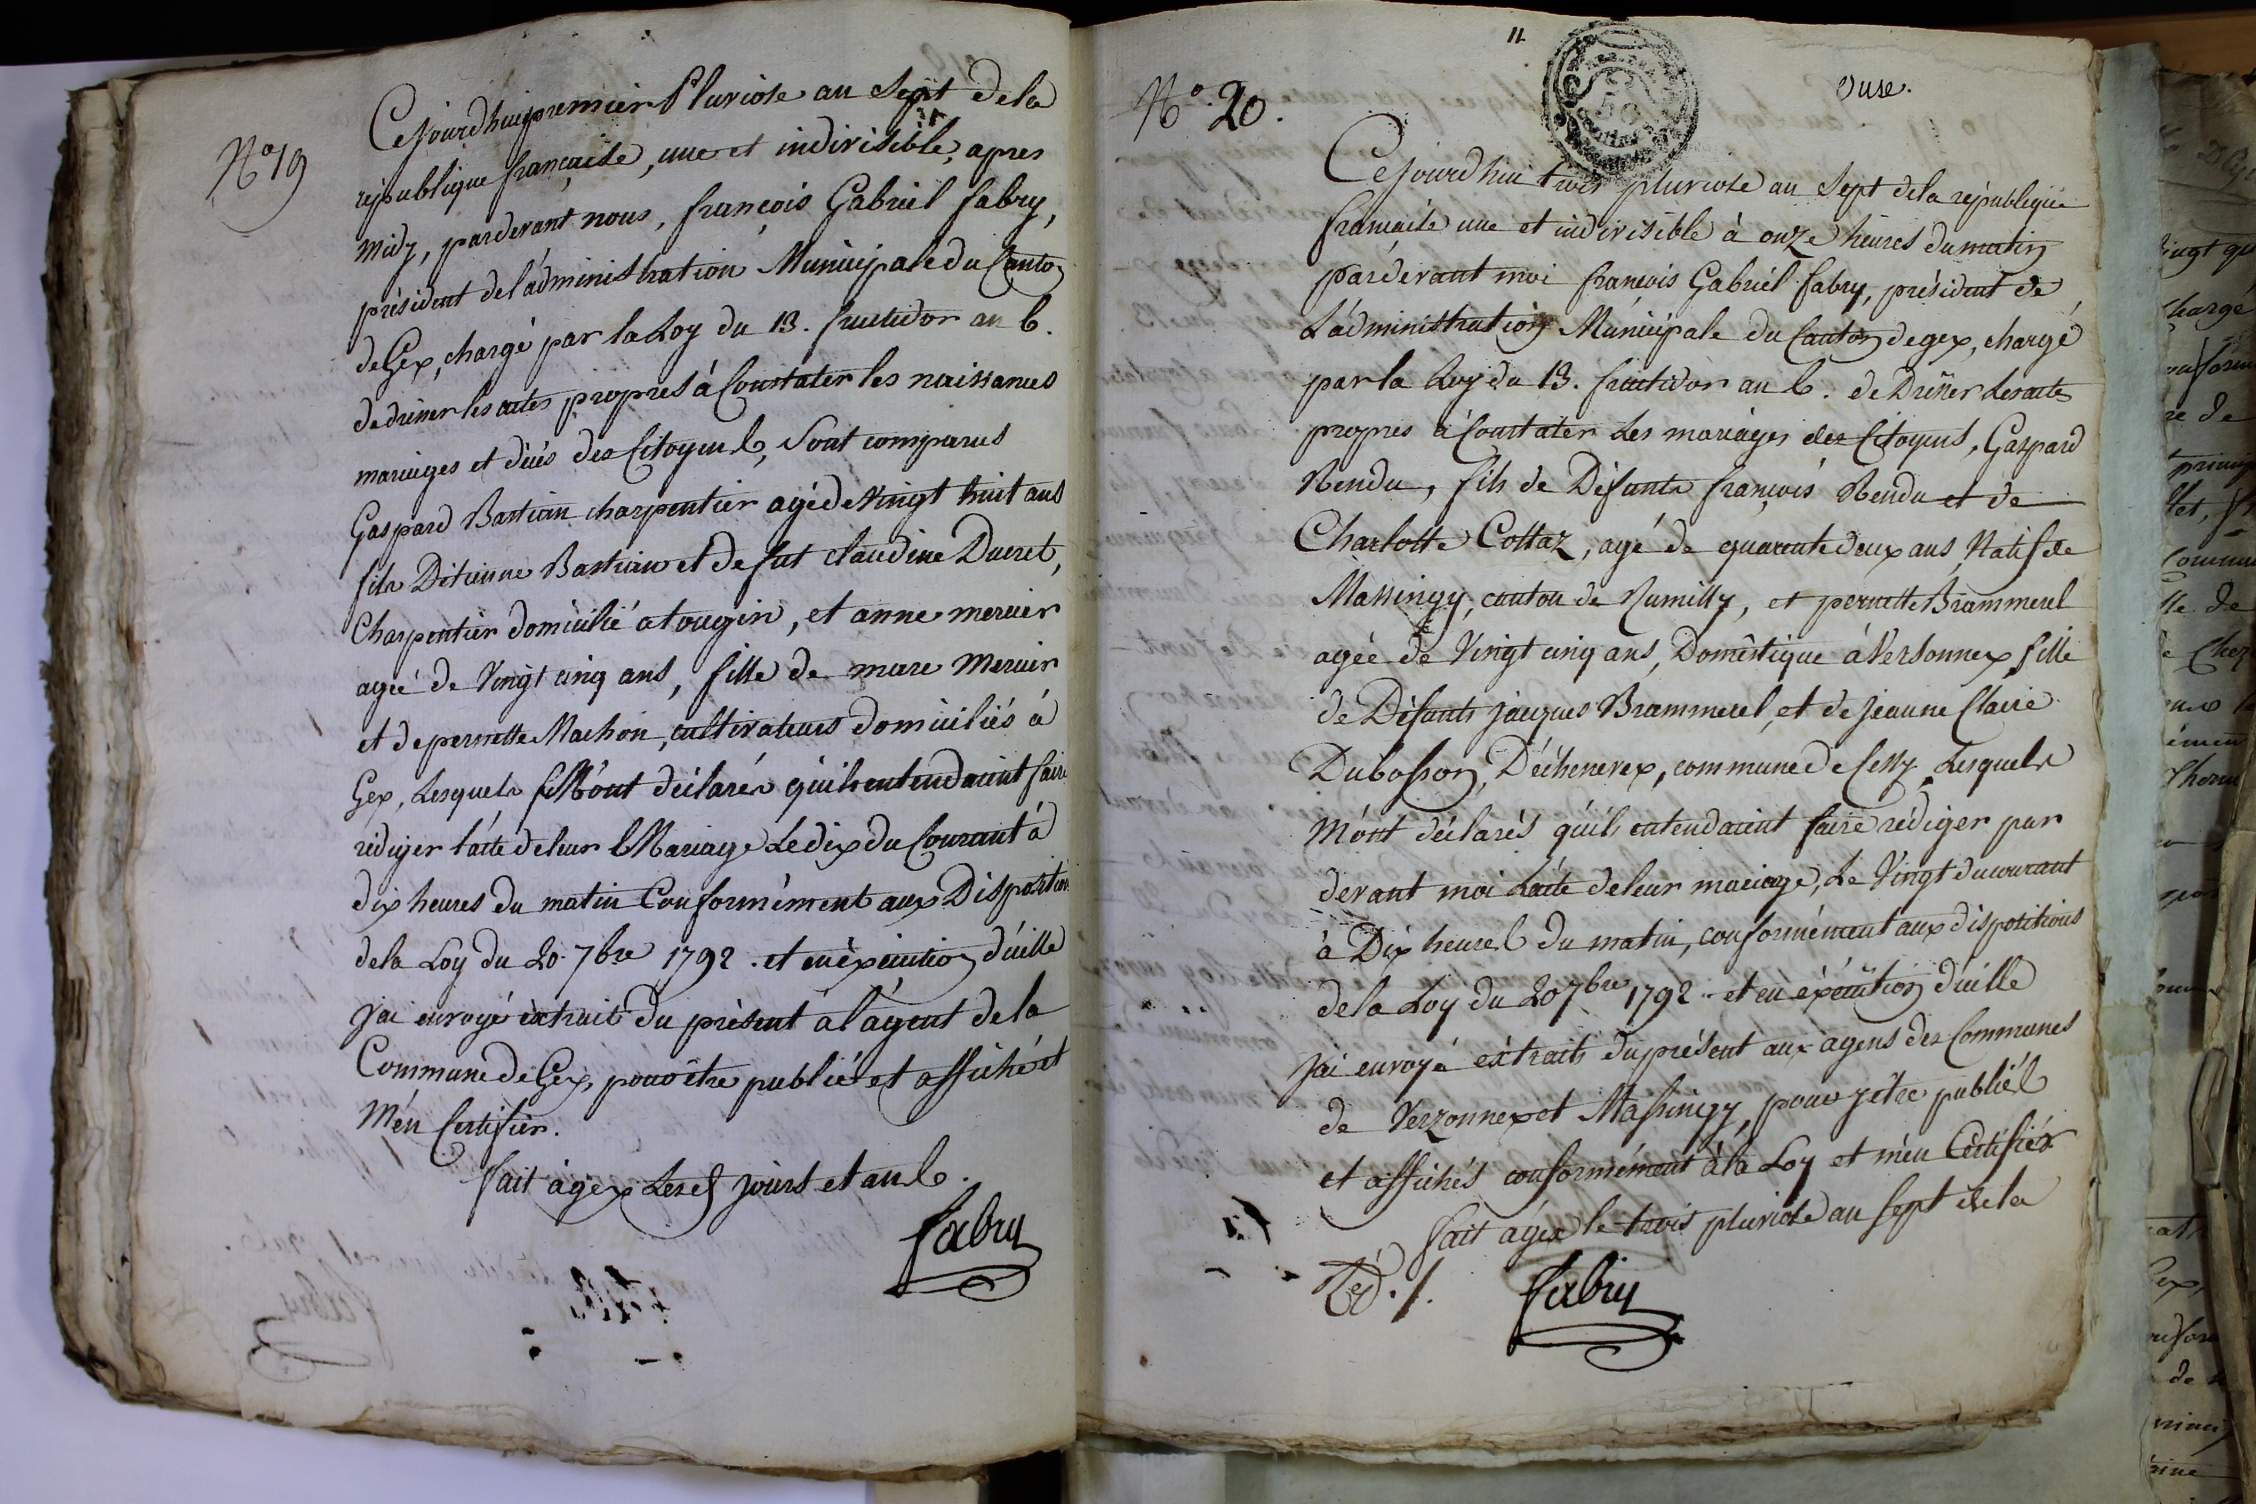 No 19
Cejourdhuy premier Pluviose an Sept dela
republique française, une et indivisible, apres
midy, pardevant nous, françois Gabriel fabry,
président del'administration Municipale du Canton
de Gex, chargé par la Loy du 13. fructidor an 6.
de dresser les actes propres à Constater les naissances
mariages et décès des Citoyens, Sont comparus
Gaspard Bastian charpentier agé de Vingt huit ans
fils D'étienne Bastian et de fut claudine Ducret,
Charpentier domicilié a tougin, et anne mercier
agée de Vingt cinq ans, fille de marc Mercier
et de pernette Machon, cultivateurs domiciliés à
Gex, Lesquels M'ont déclarés qu'ils entendaient faire
rédiger l'acte de leur Mariage Le dix du Courant à
dix heures du matin Conformément aux Disposition
dela Loy du 20. 7bre 1792. et en éxécution d'icelle
J'ai envoyé extrait du présent à l'agent de la
Commune de Gex, pour être publié et affiché et
M'én Certifier.
fait à gex Les ? jours et an 6.
fabry
11
onse.
No. 20.
50
Cejourdhui trois pluviose an Sept dela république
française une et indivisible à onze heures du matin
pardevant moi françois Gabriel fabry, président de
L'administration Municipale du Canton de gex, chargé
par la Loy du 13. fructidor an 6. de Dresser Les acte
propres à Constater Les mariages des Citoyens, Gaspard
Rendu, fils de Défunts françois Rendu et de
Charlotte Cottaz, agé de quarente deux ans, Natif de
Massingy, canton de Rumilly, et pernette Brammerel
agée de Vingt cinq ans, Domestique à Versonnex, fille
de Défunts jacques Brammerel, et de jeanne Claire
Dubosson, D'échenevex, commune de Cessy Lesquels
M'ont déclarés qu'ils entendaient faire rédiger par
devant moi L'acte de leur mariage, Le Vingt du courant
à Dix heures du matin, conformément aux dispositions
de la Loy du 20 7bre 1792. et en éxécution d'icelle
J'ai envoyé extraits du présent aux agens des Communes
de Verzonnex et Massingy, pour y être publiés
et affichés conformément à la Loy et m'en Certifier
fait à gex le trois pluviose an sept de la
Réd. 1.
fabry